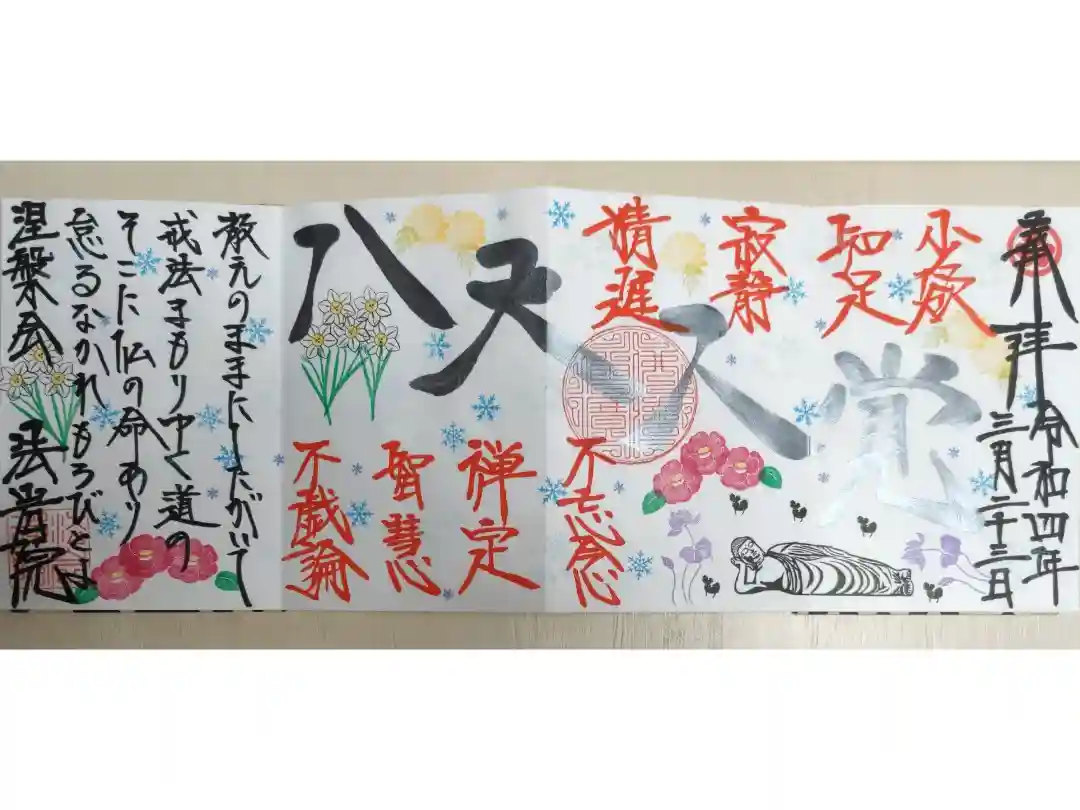 奉拝
令和四年
三月二十三日
少欲
知足
寂静
精進
八大人覚
不忘念
禅定
智慧
不戯論
教えのままにしたがいて
戒法まもりゆく道の
そこに仏の命あり
怠るなかれもろびとは
涅槃会